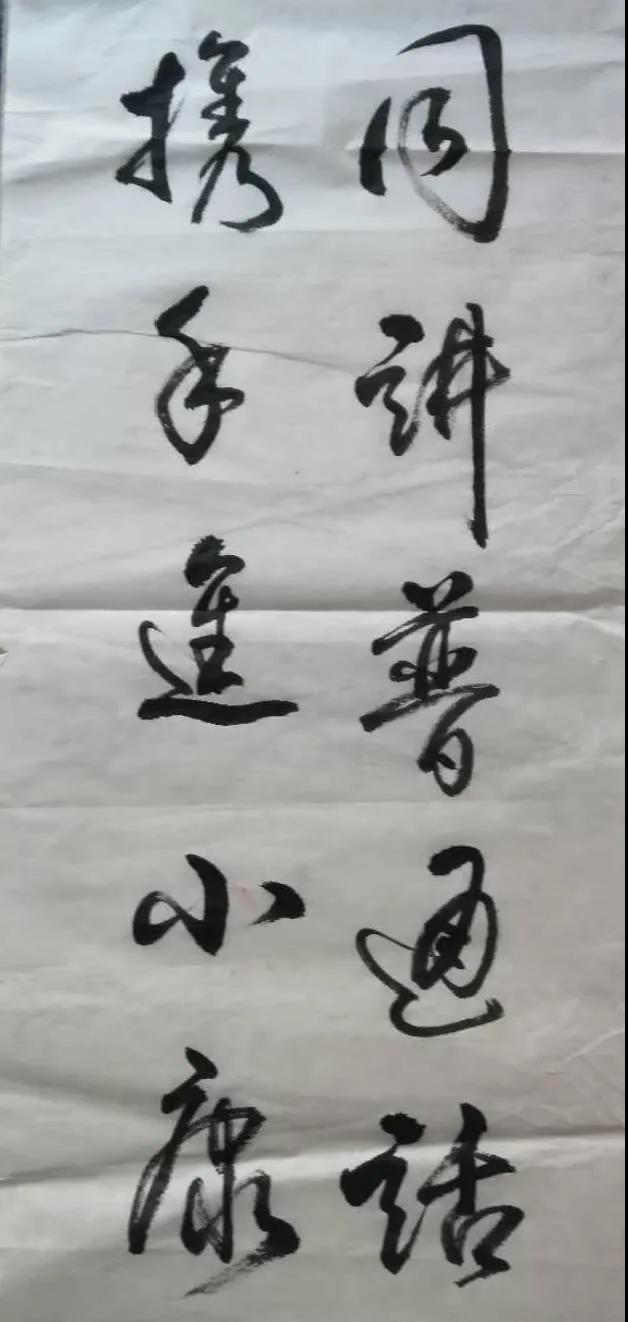 同讲普通话
携手進小康